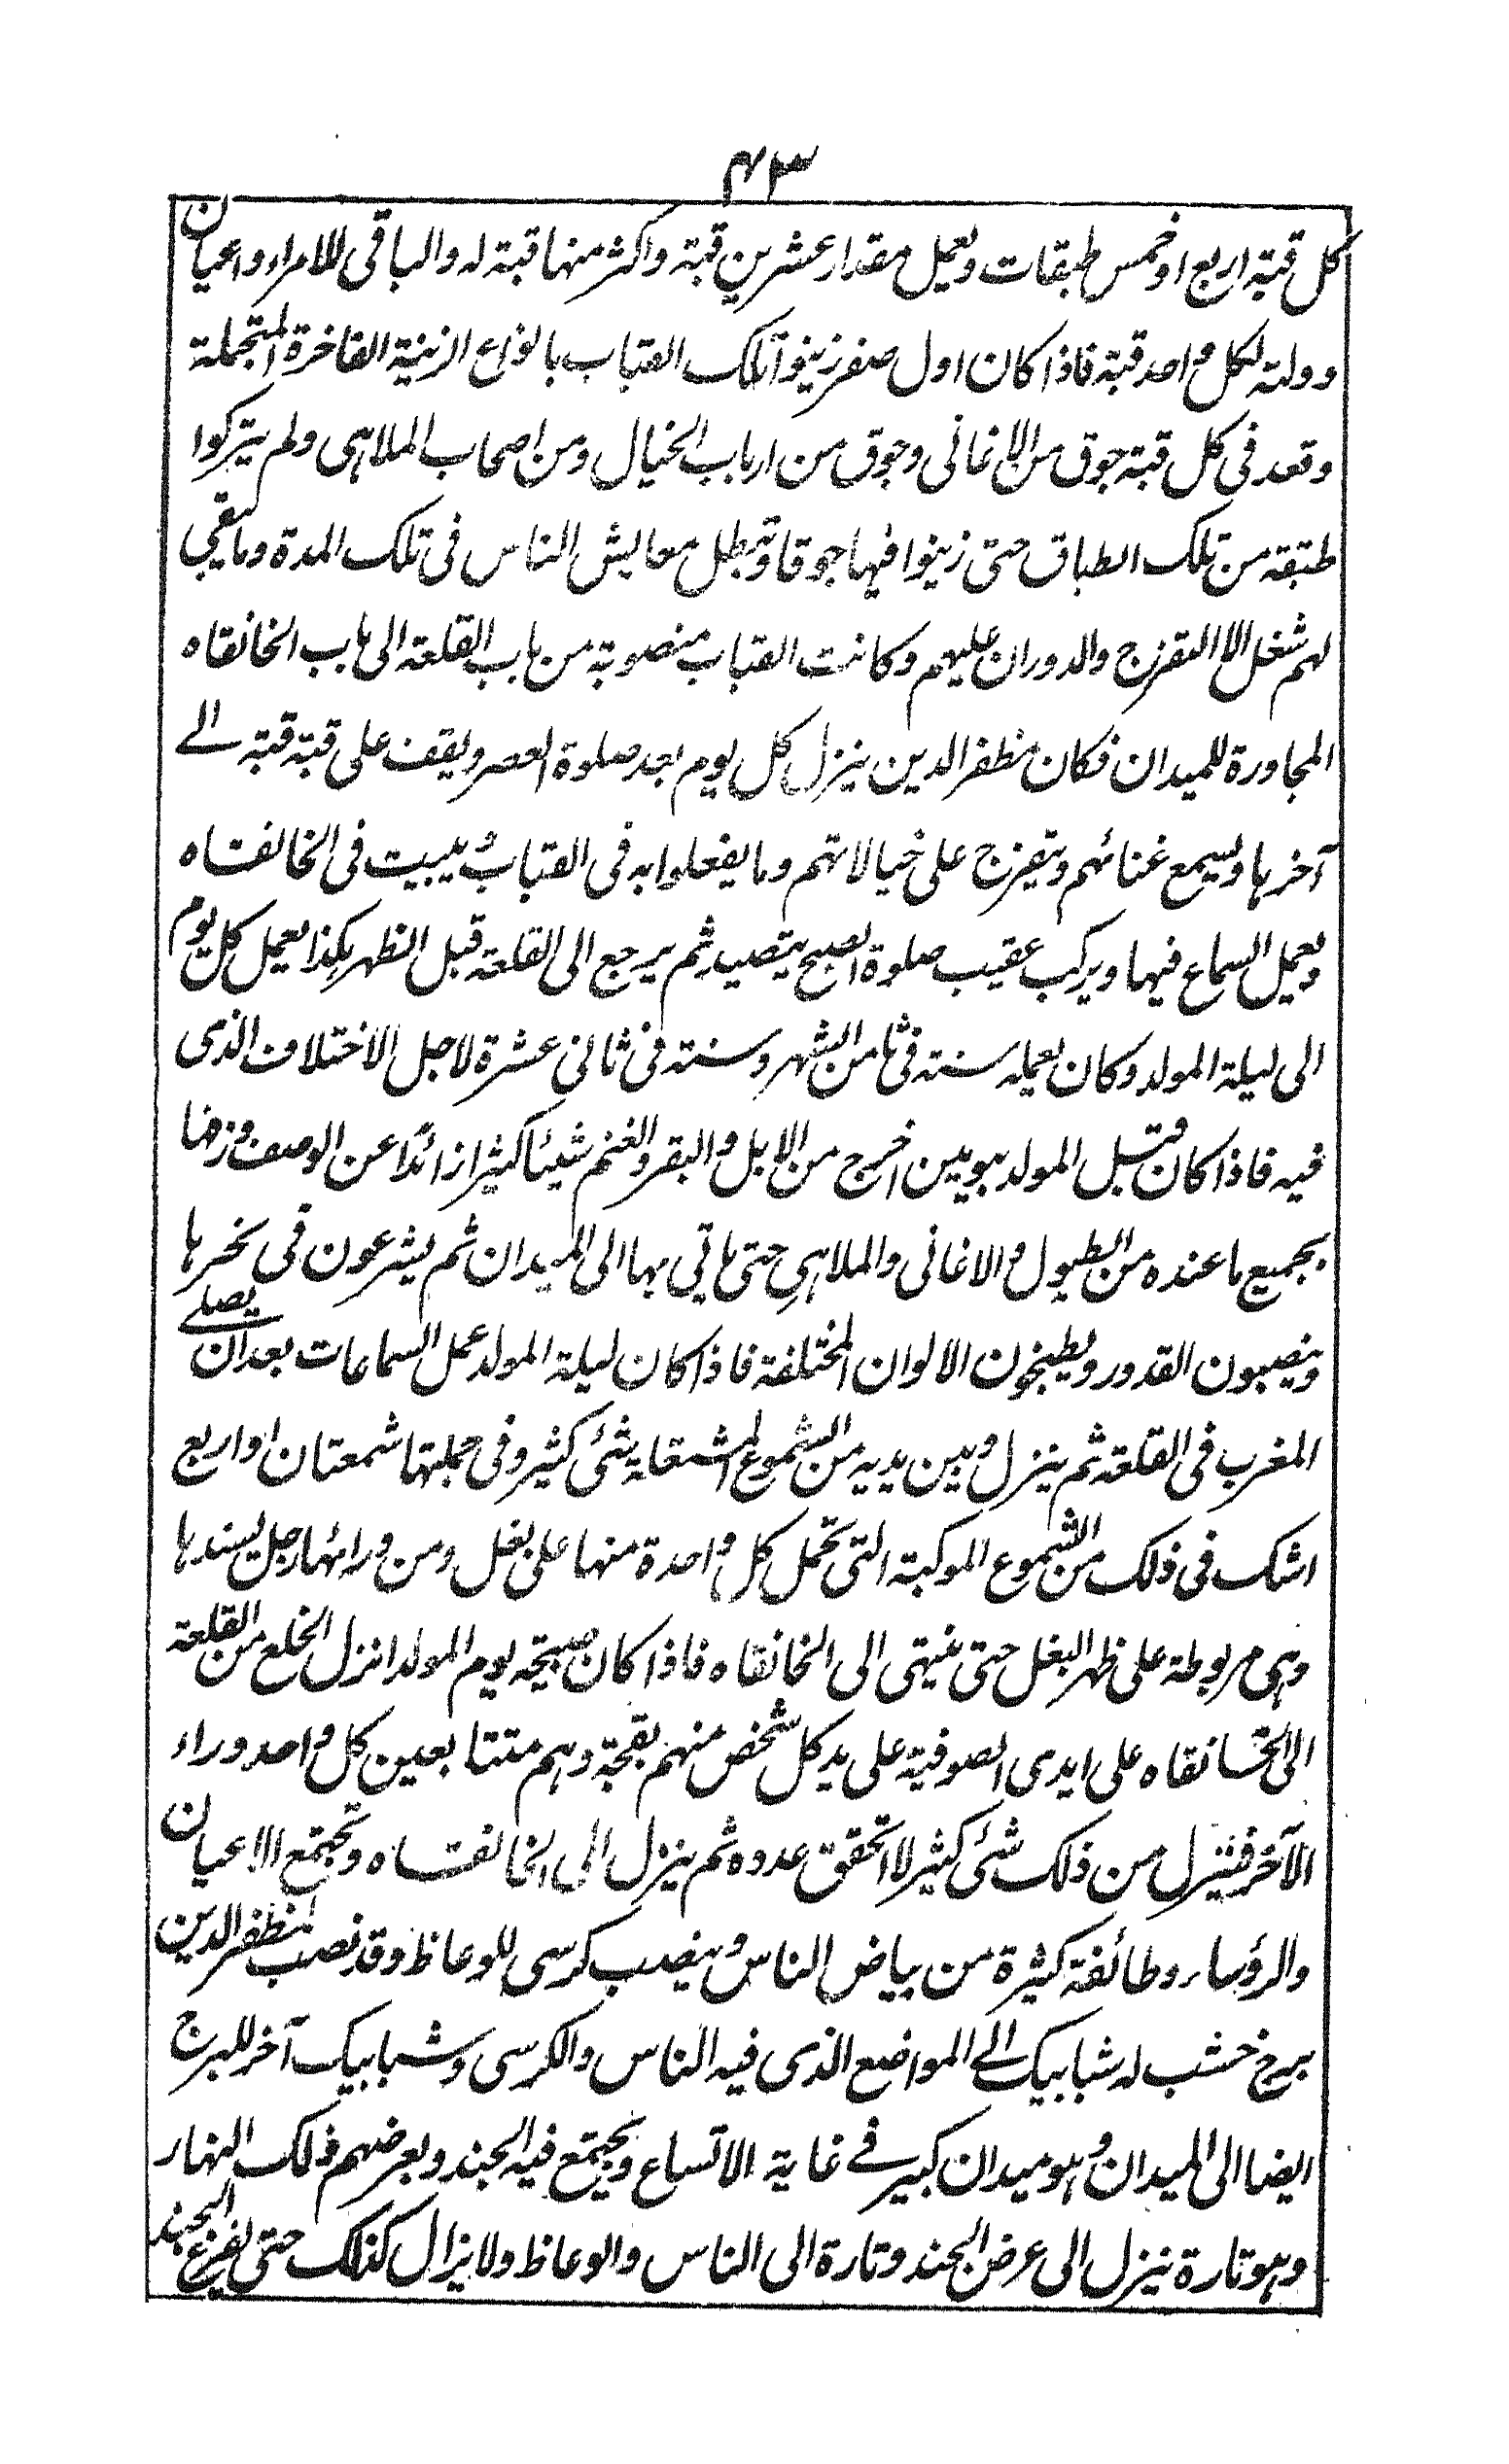 ۴۳
كل قبة اربع او خمس طبقات ويعمل مقدار عشرين قبة واكثر منها قبة له والباقى للامراء واعيان
دولته لكل واحد قبة فاذا كان اول صفر زينوا تلك القباب بانواع الزينة الفاخرة المتجملة
وقعد فى كل قبة جوق من الاغانى وجوق من ارباب الخيال ومن اصحاب الملاهى ولم يتركوا
طبقة من تلك الطباق حتى زينوا فيها جوقا وتبطل معايش الناس فى تلك المدة وما يبقى
لهم شغل الا التفرج والدوران عليهم وكانت القباب منصوبة من باب القلعة الى باب الخانقاه
المجاورة للميدان فكان مظفر الدين ينزل كل يوم بعد صلوة العصر ويقف على قبة قبة الى
آخرها ويسمع غنائهم ويتفرج على خيالاتهم وما يفعلوا به فى القباب ويبيت فى الخانقاه
ويعمل السماع فيها ويركب عقيب صلوة الصبح يتصيد ثم يرجع الى القلعة قبل الظهر هكذا يعمل كل يوم
الى ليلة المولد وكان يعمله سنة فى ثامن الشهر وسنة فى ثانى عشرة لاجل الاختلاف الذى
فيه فاذا كان قبل المولد بيومين اخرج من الابل والبقر والغنم شيئا كثيرا زائدًا عن الوصف وزفها
بجميع ما عنده من الطبول والاغانى والملاهى حتى ياتى بها الى الميدان ثم يشرعون فى نحرها
وينصبون القدور ويطبخون الالوان المختلفة فاذا كان ليلة المولد عمل السماعات بعد ان يصلے
المغرب فى القلعة ثم ينزل وبين يديه من الشموع المشتعلة شئى كثير وفى جملتها شمعتان او اربع
اشك فى ذلك من الشموع الموكبة التى تحمل كل واحدة منها على بغل ومن ورائها رجل يسندها
وهى مربوطة على ظهر البغل حتى ينتهى الى الخانقاه فاذا كان صبيحة يوم المولد انزل الخلع من القلعة
الى الخانقاه على ايدى الصوفية على يد كل شخص منهم بقجة وهم متتابعين كل واحد وراء
الآخر فينزل من ذلك شئى كثير لا اتحقق عدده ثم ينزل الى الخانقاه وتجتمع الاعيان
والرؤساء وطائفة كثيرة من بياض الناس وينصب كرسى للوعاظ وقد نصب لمظفر الدين
برج خشب له شبابيك الى المواضع الذى فيه الناس والكرسى وشبابيك آخر للبرج
ايضا الى الميدان وهو ميدان كبير فى غاية الاتساع ويجتمع فيه الجند ويعرضهم ذلك النهار
وهو تارة ينزل الى عرض الجند وتارة الى الناس والوعاظ ولا يزال كذلك حتى يفرغ الجند